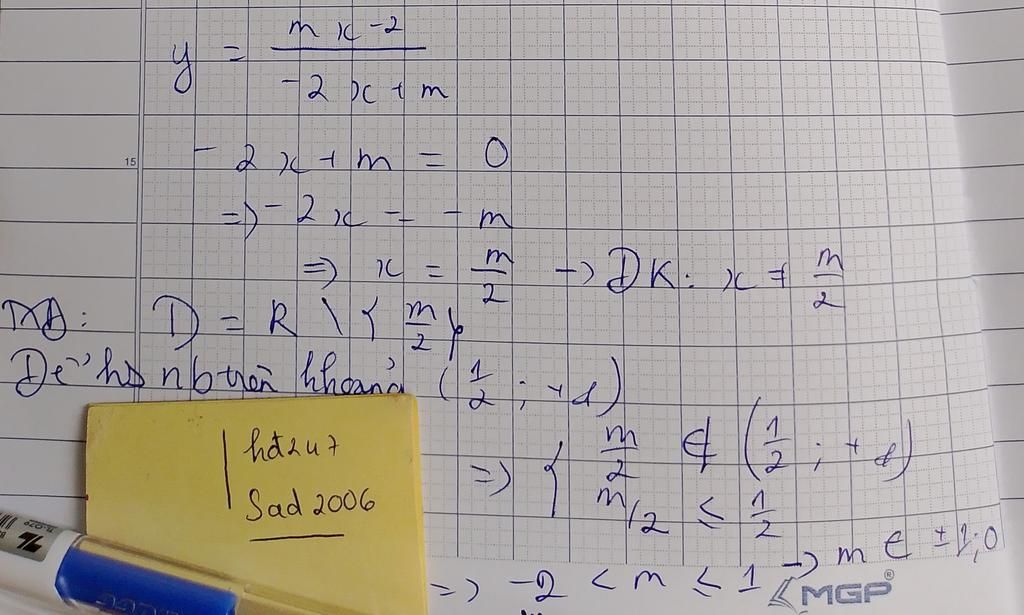 y = \frac{mx-2}{-2x+m}
-2x+m = 0
=> -2x = -m
=> x = \frac{m}{2} -> ĐK: x ≠ \frac{m}{2}
TXĐ: D = R \ { \frac{m}{2} }
Để hs nb trên khoảng ( \frac{1}{2} ; +∞)
=> { \frac{m}{2} ∉ ( \frac{1}{2} ; +∞)
m/2 ≤ \frac{1}{2}
=> -2 < m ≤ 1 -> m ∈ ±1;0
hđ247
Sad2006
15
MGP
TL-079